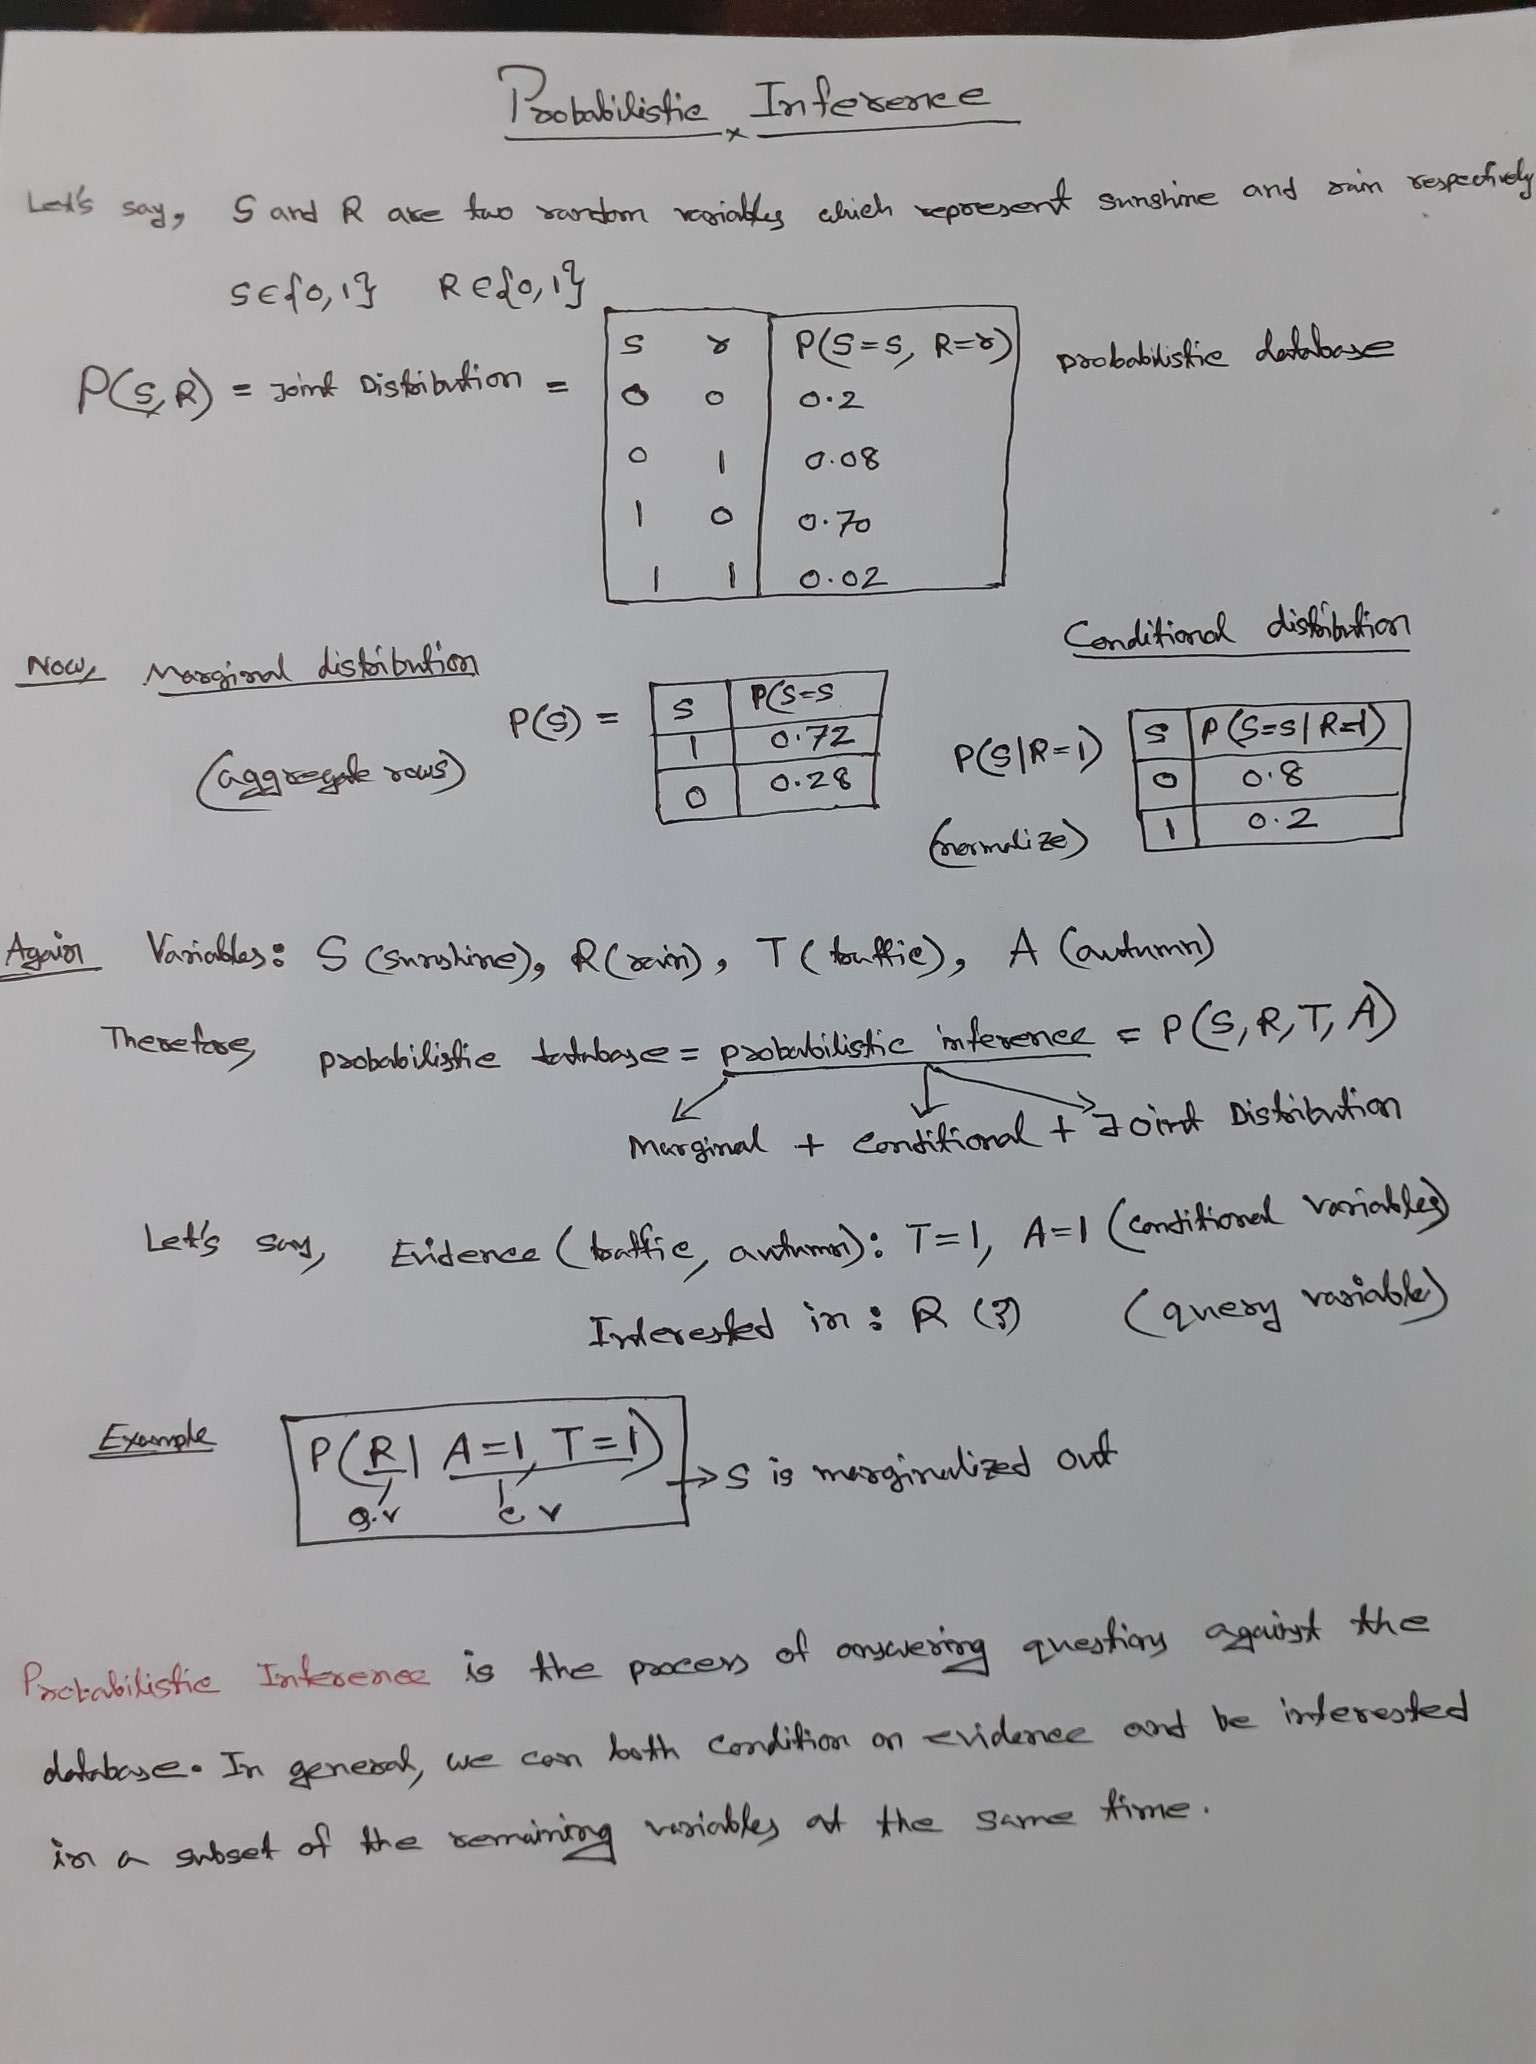 Probabilistic Inference
Let's say, S and R are two random variables which represent sunshine and rain respectively
S∈{0,1} R∈{0,1}
P(S,R) = Joint Distribution =
s r P(S=s, R=r)
0 0 0.2
0 1 0.08
1 0 0.70
1 1 0.02
probabilistic database
Now, Marginal distribution
(aggregate rows)
P(S) =
s P(S=s
1 0.72
0 0.28
Conditional distribution
P(S|R=1)
(normalize)
s P(S=s|R=1)
0 0.8
1 0.2
Again Variables: S (sunshine), R (rain), T (traffic), A (autumn)
Therefore, probabilistic database = probabilistic inference = P(S,R,T,A)
Marginal + conditional + Joint Distribution
Let's say, Evidence (traffic, autumn): T=1, A=1 (conditional variables)
Interested in: R (?) (query variable)
Example P(R| A=1, T=1) → S is marginalized out
q.v c v
Probabilistic Inference is the process of answering questions against the
database. In general, we can both condition on evidence and be interested
in a subset of the remaining variables at the same time.